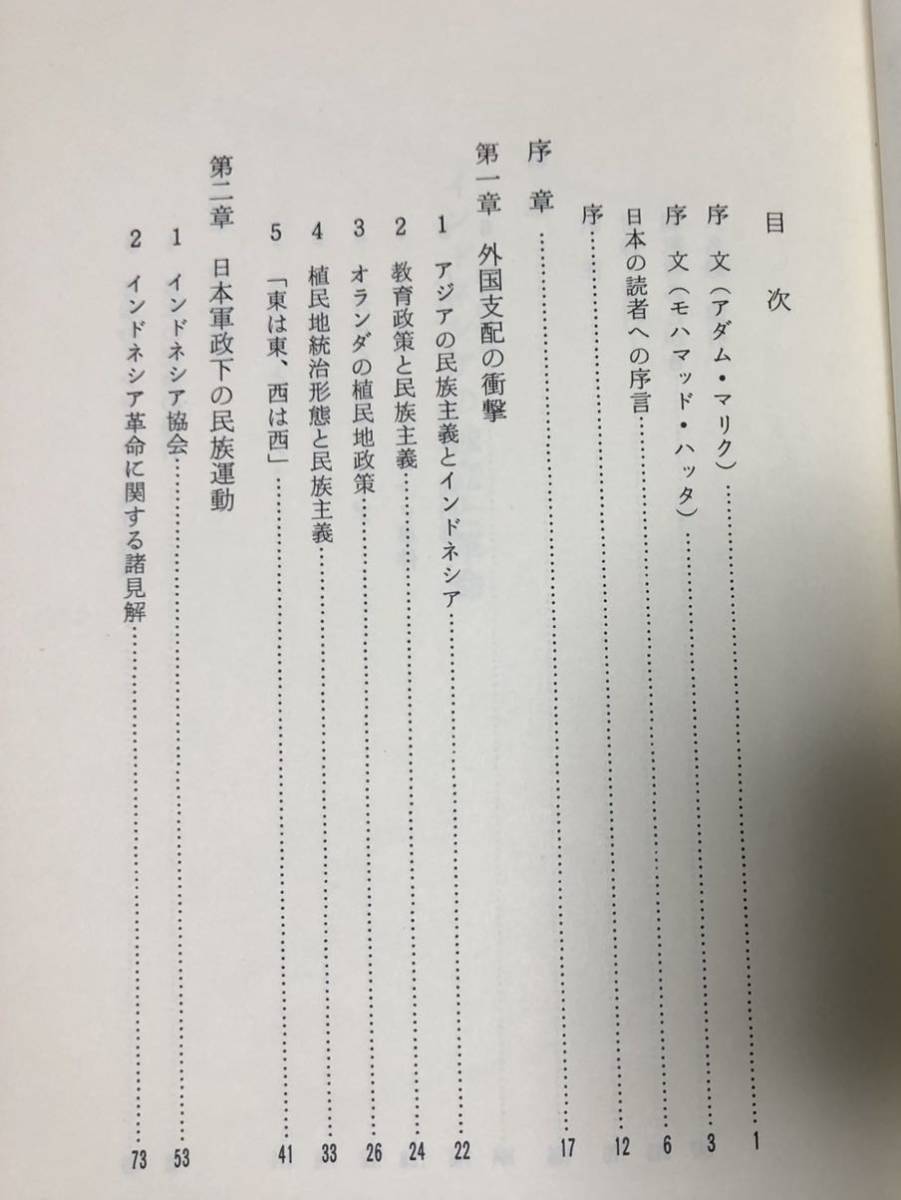 目次
序文(アダム・マリク)……1
序文(モハマッド・ハッタ)……3
日本の読者への序言……6
序……12
序章……17
第一章 外国支配の衝撃
1 アジアの民族主義とインドネシア……22
2 教育政策と民族主義……24
3 オランダの植民地政策……26
4 植民地統治形態と民族主義……33
5 「東は東、西は西」……41
第二章 日本軍政下の民族運動
1 インドネシア協会……53
2 インドネシア革命に関する諸見解……73